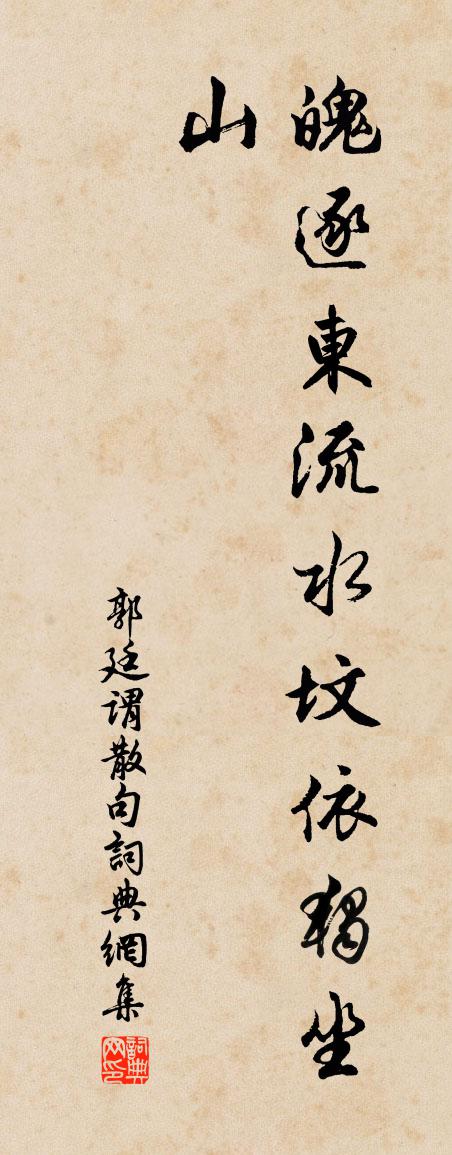 魄逐東流水坟依獨坐
山
郭廷谓散句詞典網集
詞典
网印